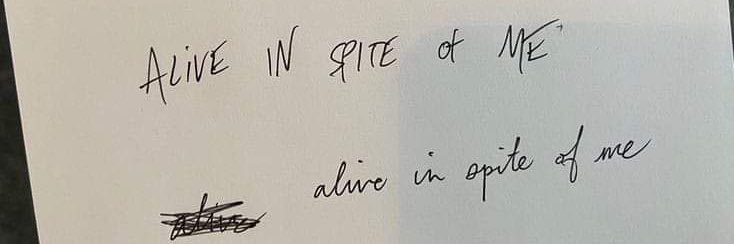 ALIVE IN SPITE of ME
alive in spite of me
alive